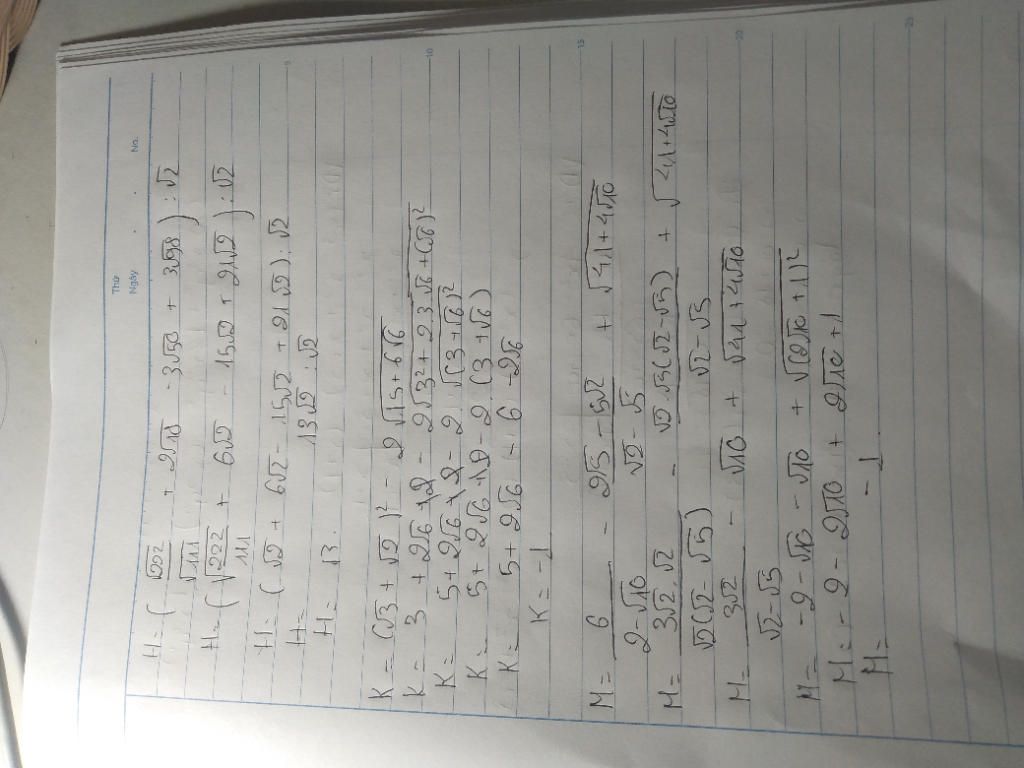 Thứ
Ngày . . No.
H = ( √222 / √111 + 2√18 - 3√50 + 3√98 ) : √2
H = ( √(222/111) + 6√2 - 15√2 + 21√2 ) : √2
H = ( √2 + 6√2 - 15√2 + 21√2 ) : √2
H = 13√2 : √2
H = 13.
K = (√3 + √2)² - 2√(15 + 6√6)
K = 3 + 2√6 + 2 - 2√(3² + 2.3√6 + (√6)²)
K = 5 + 2√6 - 2√((3 + √6)²)
K = 5 + 2√6 - 2 (3 + √6)
K = 5 + 2√6 - 6 - 2√6
K = -1
M = 6 / (2 - √10) - (2√5 - 5√2) / (√2 - √5) + √(41 + 4√10)
M = 3√2.√2 / (√2(√2 - √5)) - √2.√5(√2 - √5) / (√2 - √5) + √(41 + 4√10)
M = 3√2 / (√2 - √5) - √10 + √(41 + 4√10)
M = -2 - √10 - √10 + √((2√10 + 1)²)
M = -2 - 2√10 + 2√10 + 1
M = -1
5
10
15
20
25